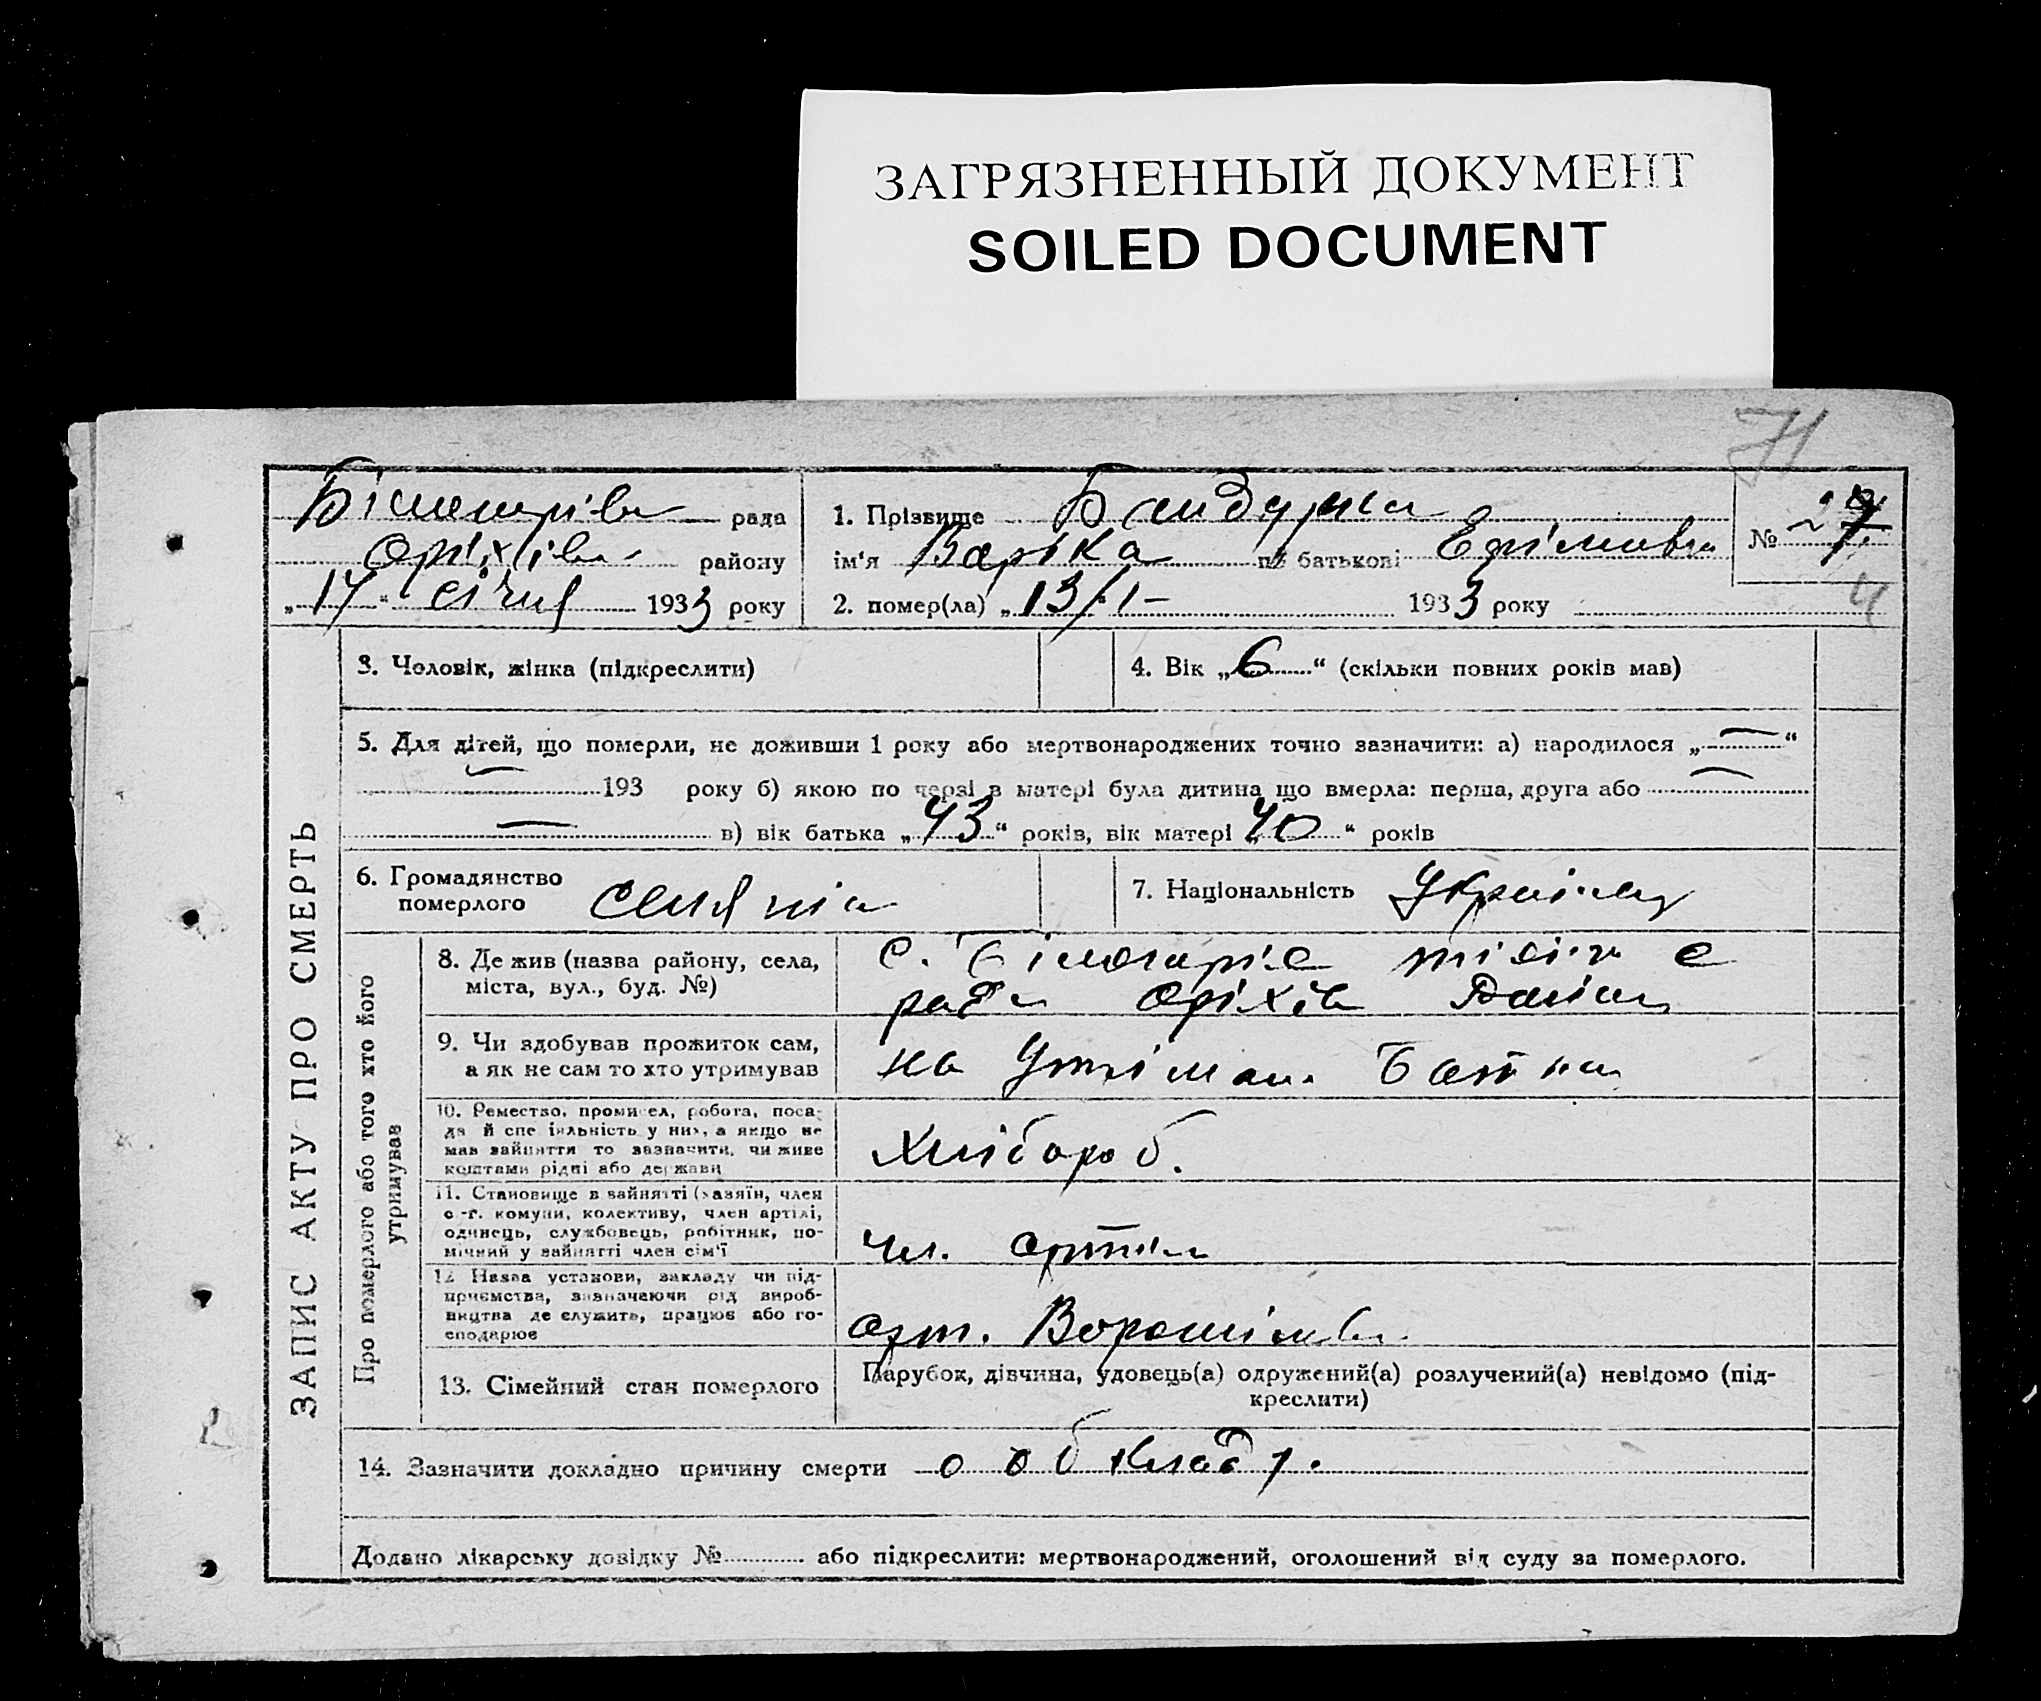 ЗАГРЯЗНЕННЫЙ ДОКУМЕНТ
SOILED DOCUMENT
71
рада
1. Прізвище Бандурка
№
Оріхів району
ім'я Варка по батькові
„14“ січня 1933 року
2. помер(ла) „13/I- 1933 року
4
ЗАПИС АКТУ ПРО СМЕРТЬ
3. Чоловік, жінка (підкреслити)
4. Вік „6“ (скільки повних років мав)
5. Для дітей, що померли, не доживши 1 року або мертвонароджених точно зазначити: а) народилося „—“
— 193 року б) якою по черзі в матері була дитина що вмерла: перша, друга або —
— в) вік батька „43“ років, вік матері „40“ років
6. Громадянство
померлого
7. Національність
Про померлого або того хто його
утримував
8. Де жив (назва району, села,
міста, вул., буд. №)
с.
ради Оріхів
9. Чи здобував прожиток сам,
а як не сам то хто утримував
на Утриман. Батька
10. Ремество, промисел, робота, поса-
да й спеціяльність у них, а якщо не
мав зайняття то зазначити, чи живе
коштами рідні або держави
Хлібороб.
11. Становище в зайнятті (хазяїн, член
с.-г. комуни, колективу, член артілі,
одинець, службовець, робітник, по-
мічний у зайнятті член сім'ї
чл. артіли
12 Назва установи, закладу чи під-
приємства, зазначаючи рід вироб-
ництва де служить, працює або го-
сподарює
арт. Ворошілова
13. Сімейний стан померлого
Парубок, дівчина, удовець(а) одружений(а) розлучений(а) невідомо (під-
креслити)
14. Зазначити докладно причину смерти
Додано лікарську довідку № або підкреслити: мертвонароджений, оголошений від суду за померлого.